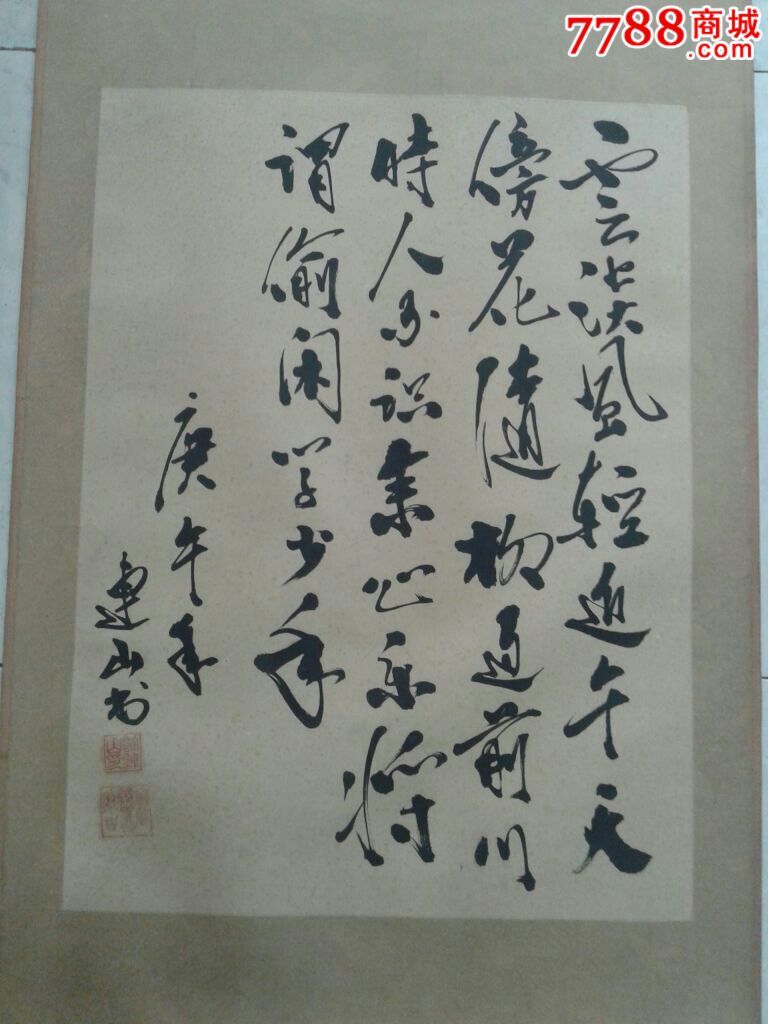 7788商城
.com
雲淡風輕近午天
傍花隨柳過前川
時人不识余心乐将
謂偷闲学少年
庚午年
山书